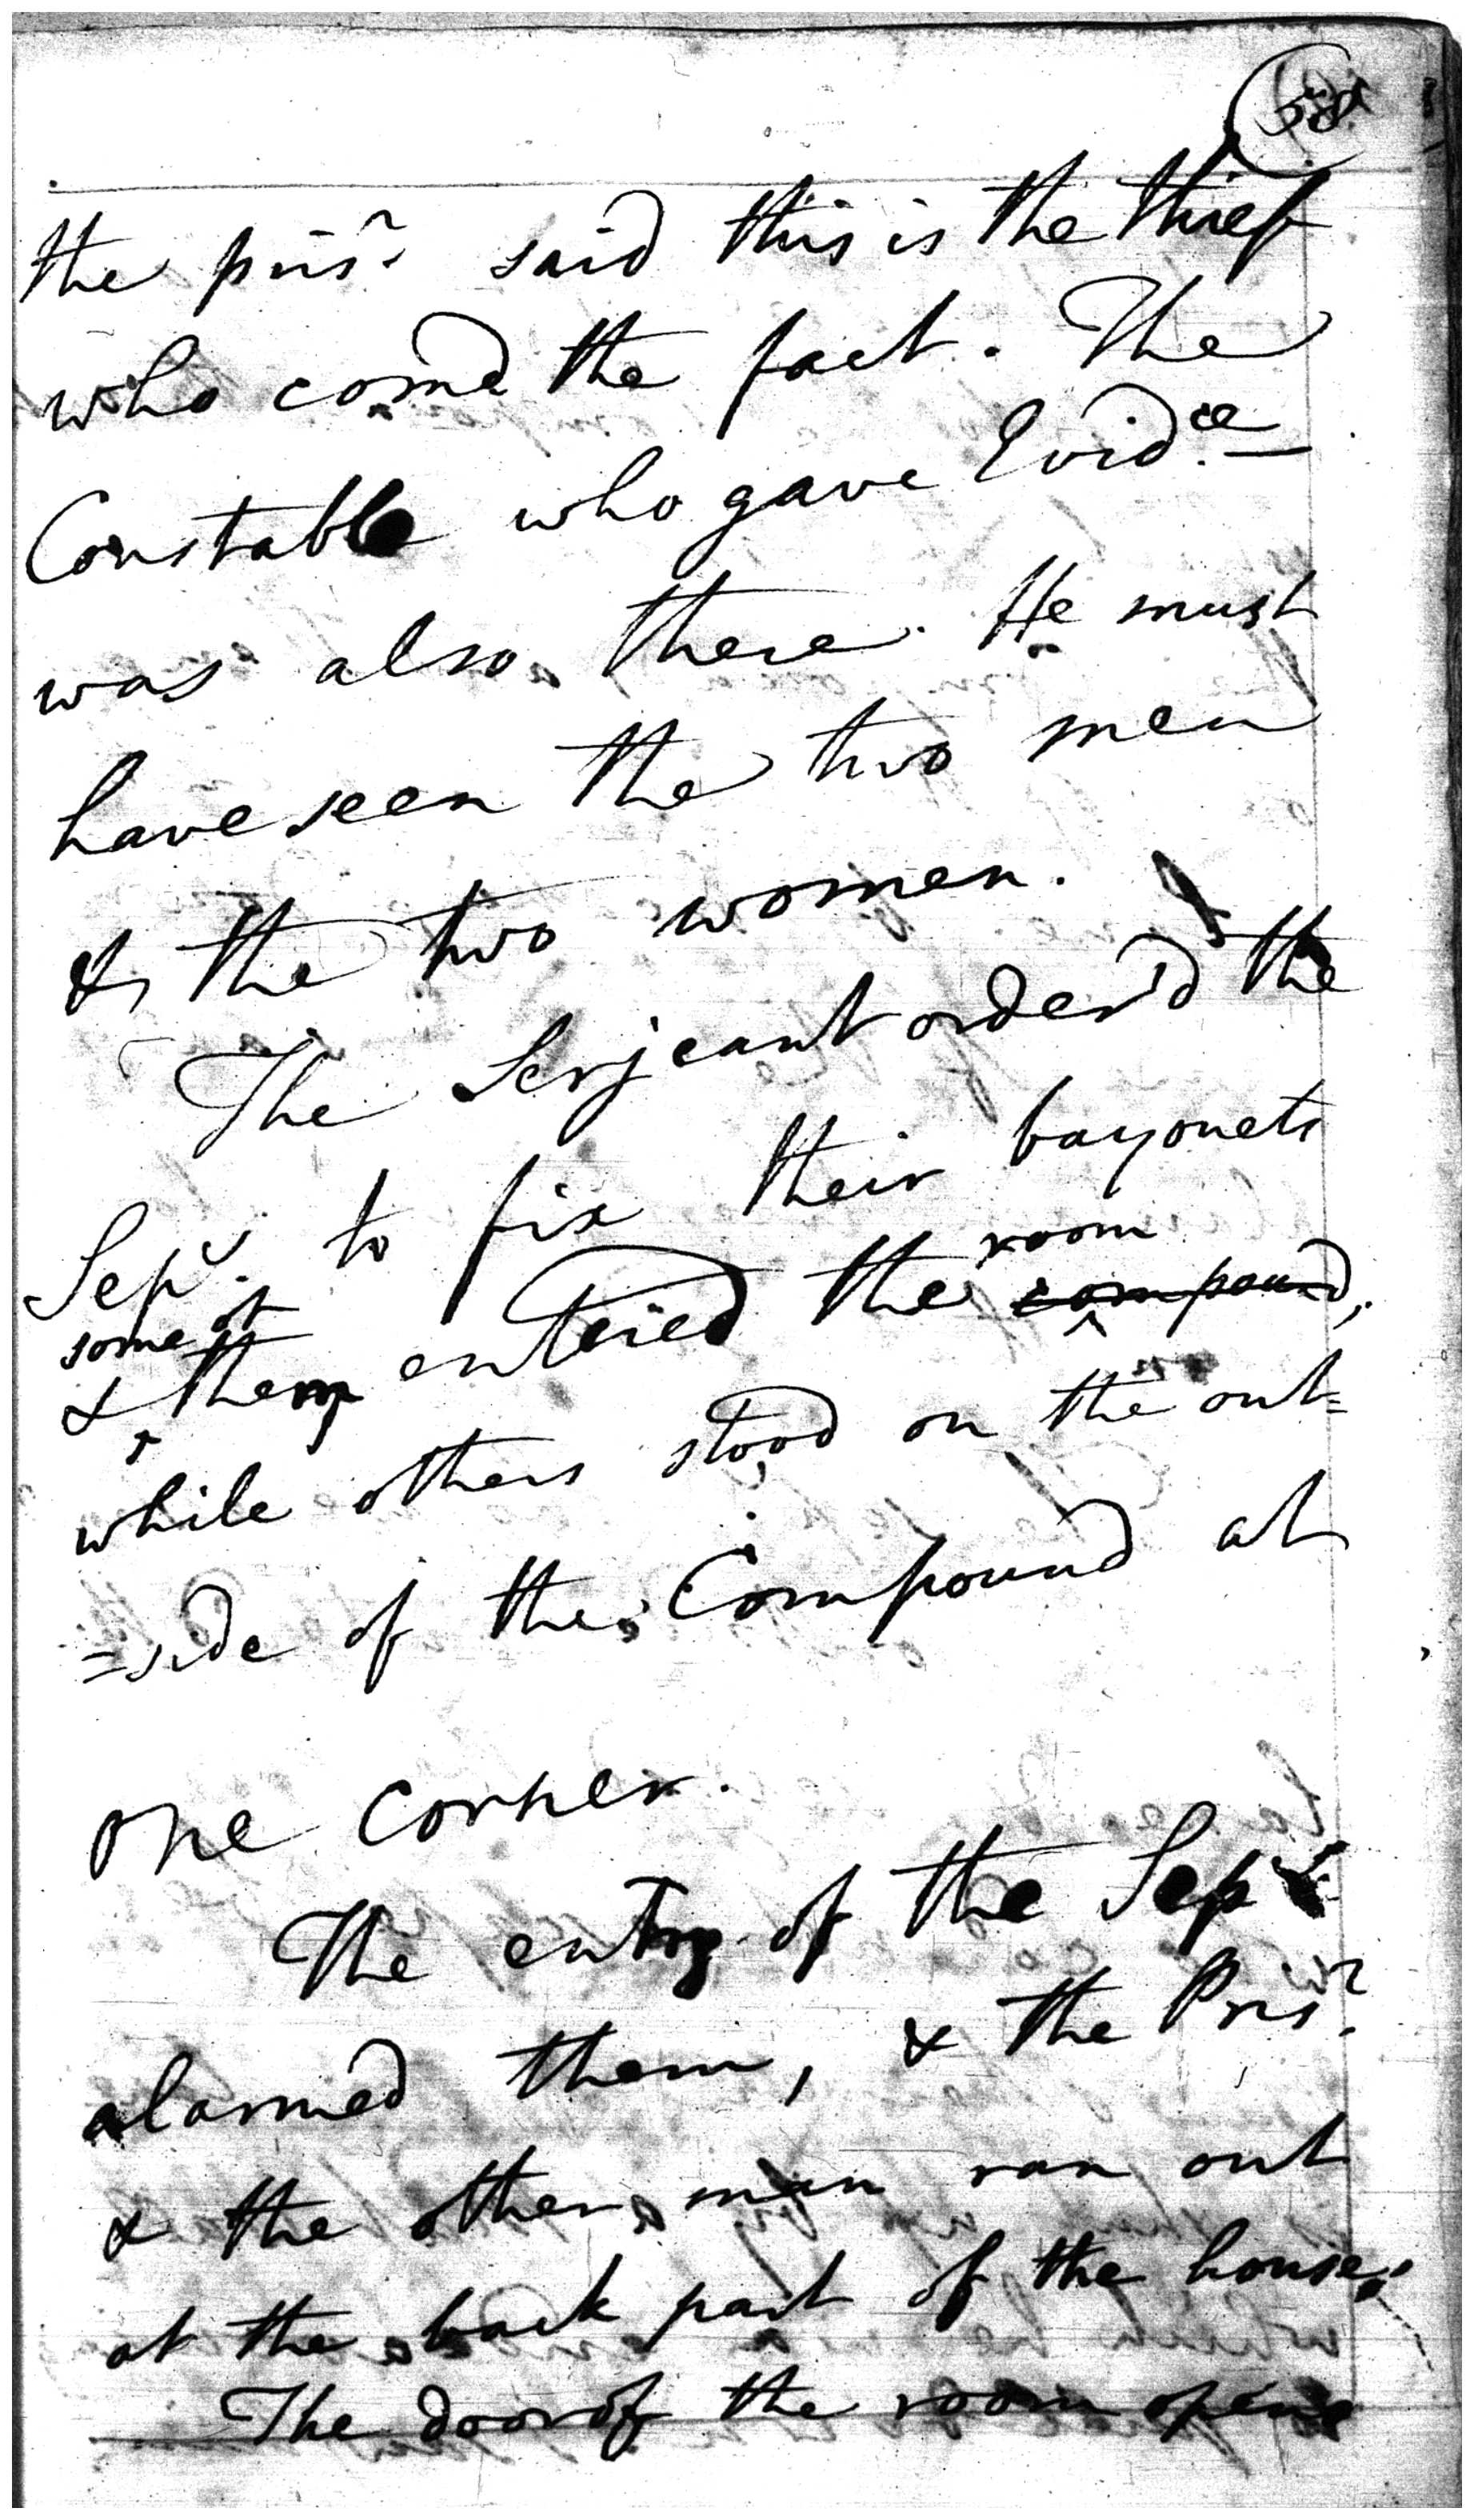 58
the pris.r said this is the thief
who comd the fact. The
Constable who gave Evid.ce
was also there. He must
have seen the two men
& the two women.
The Serjeant order'd the
Sep.s to fix their bayonets
room
some of
& them entered the compound,
while others stood on the out=
=side of the Compound at
one corner.
The entry of the Sep.s
alarmed them, & the Pris.r
& the other man ran out
at the back part of the house.
The door of the room opens